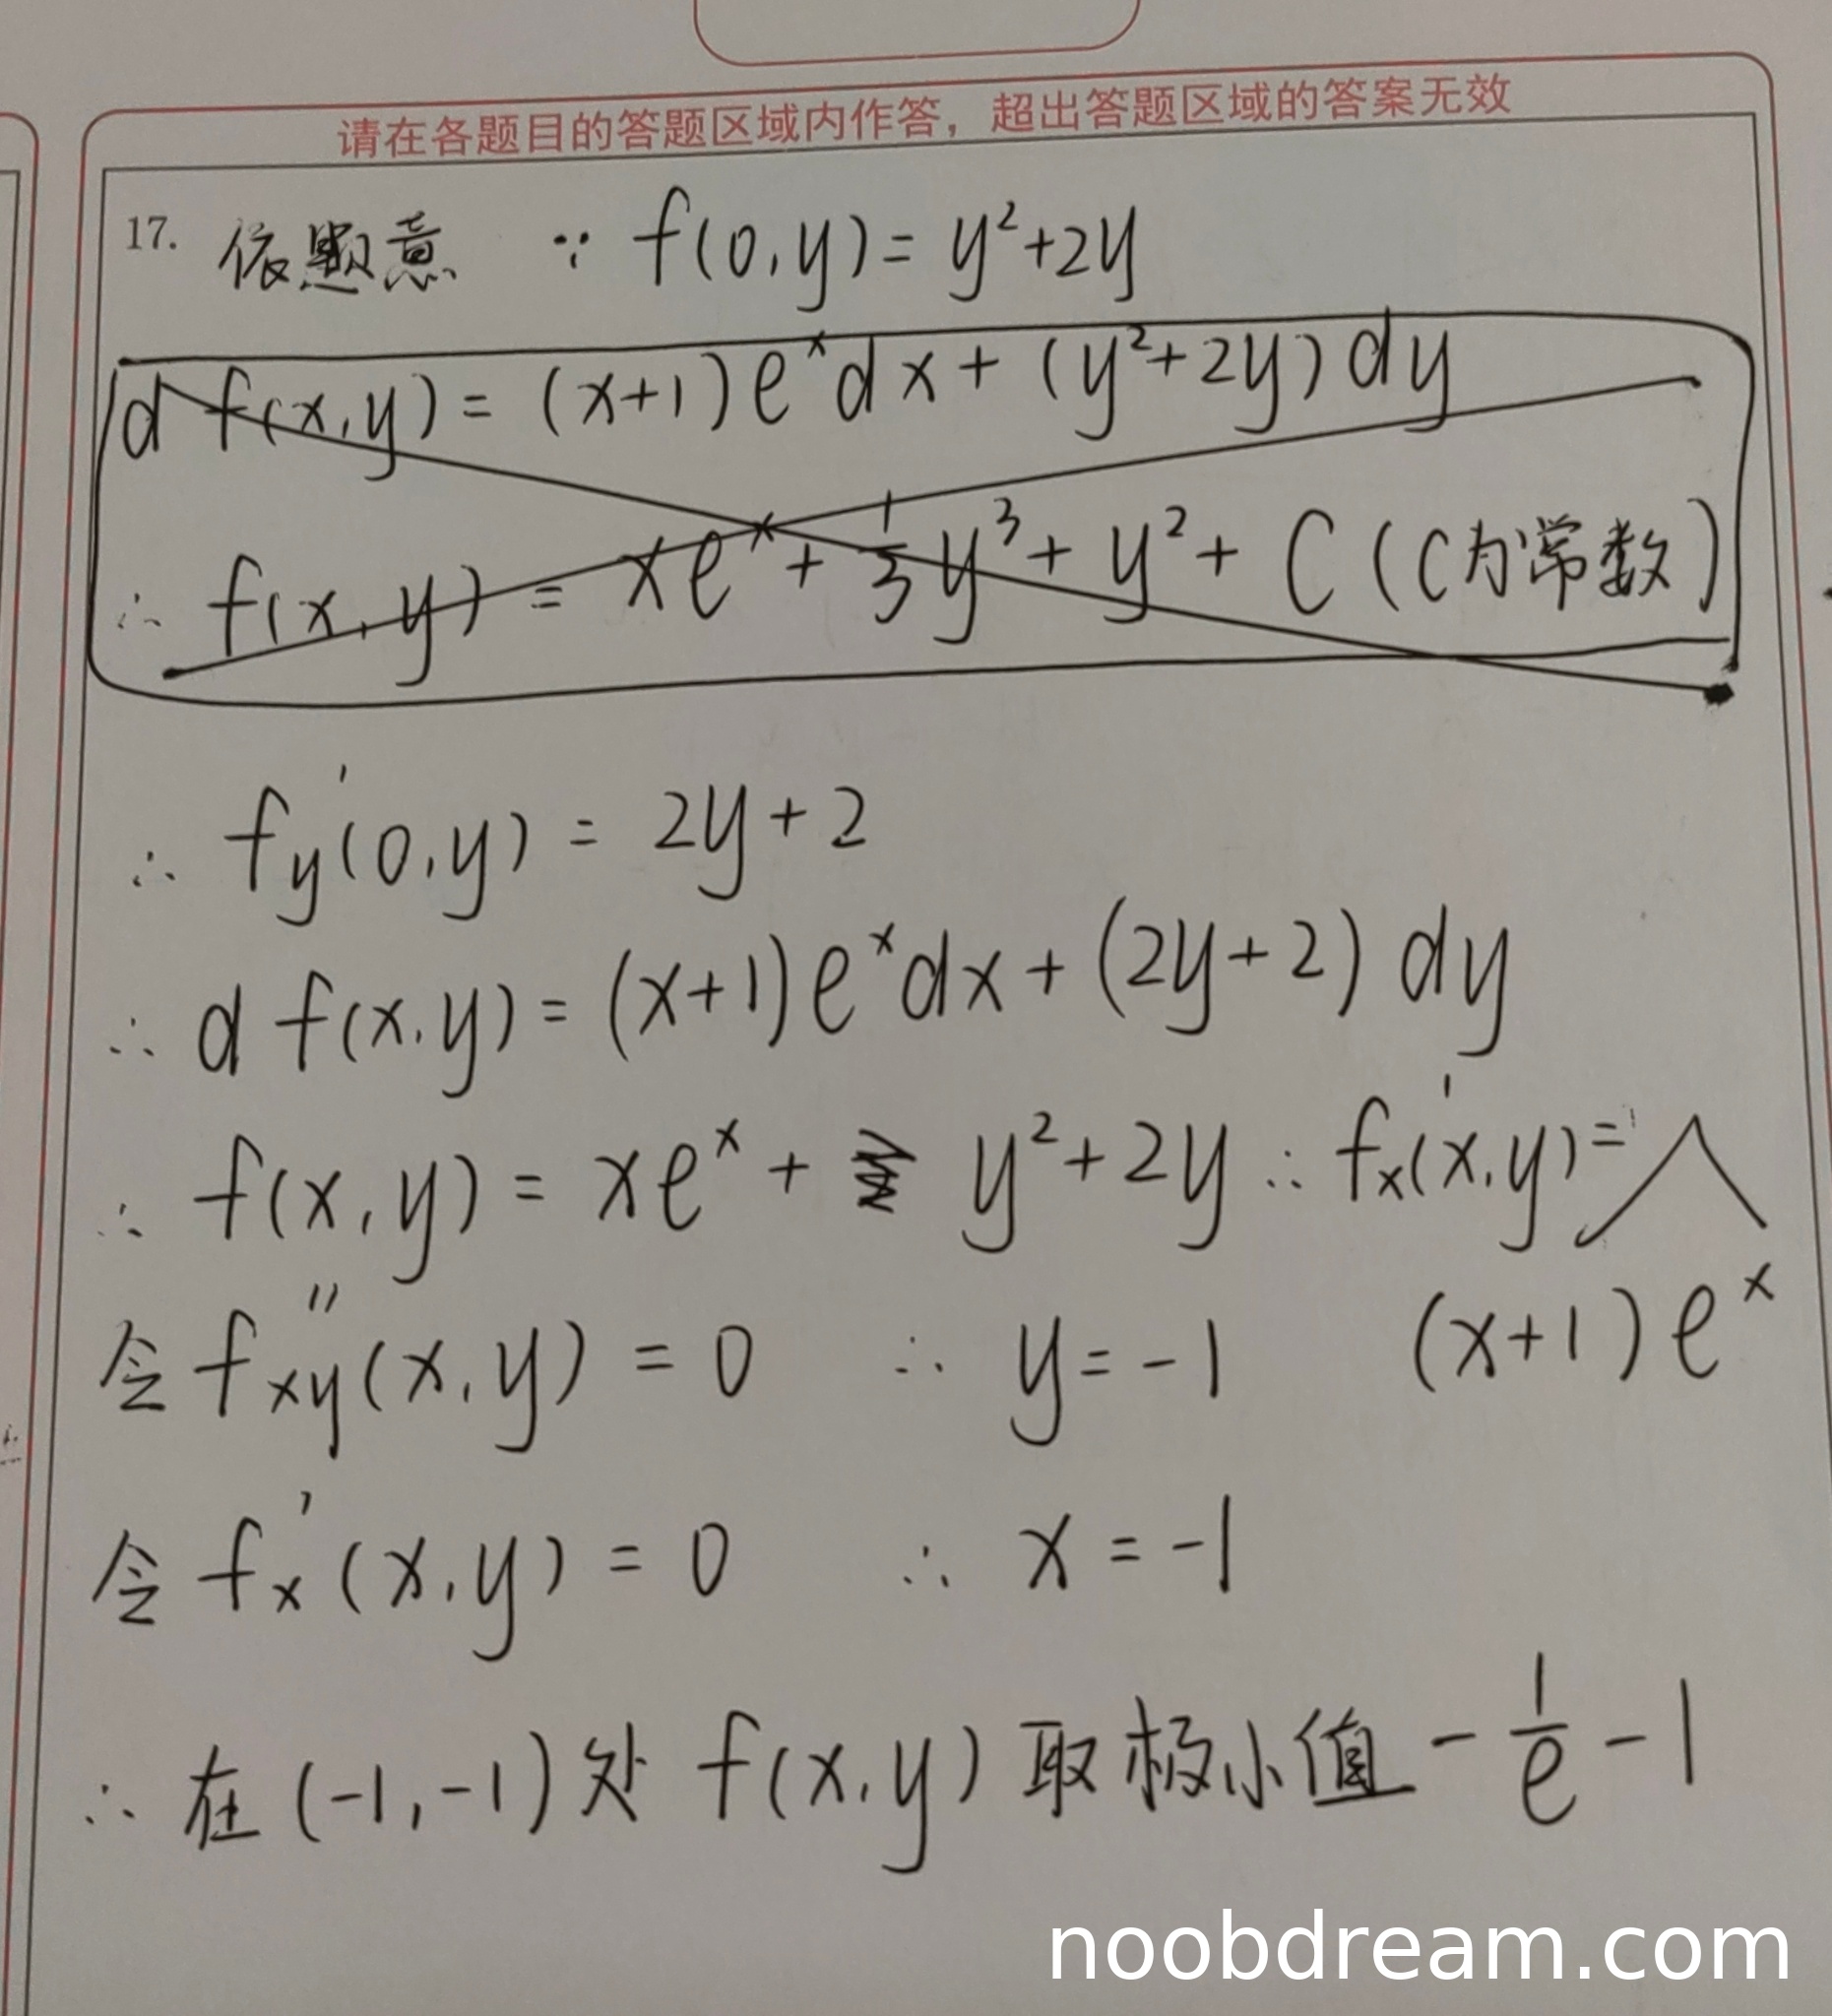 请在各题目的答题区域内作答，超出答题区域的答案无效
17. 依题意 ∵ f(0,y)= y²+2y
d f(x,y)= (x+1)eˣdx+(y²+2y)dy
∴ f(x,y) = xeˣ+ 1/3 y³+ y²+ C (C为常数)
∴ fy'(0,y) = 2y+2
∴ d f(x,y)= (x+1)eˣdx+(2y+2) dy
∴ f(x,y) = xeˣ + y²+2y ∴ fx'(x,y)=
(x+1)eˣ
令 fxy''(x,y) = 0 ∴ y=-1
令 fx'(x,y) = 0 ∴ x = -1
∴ 在 (-1,-1) 处 f(x,y) 取极小值 - 1/e - 1
noobdream.com